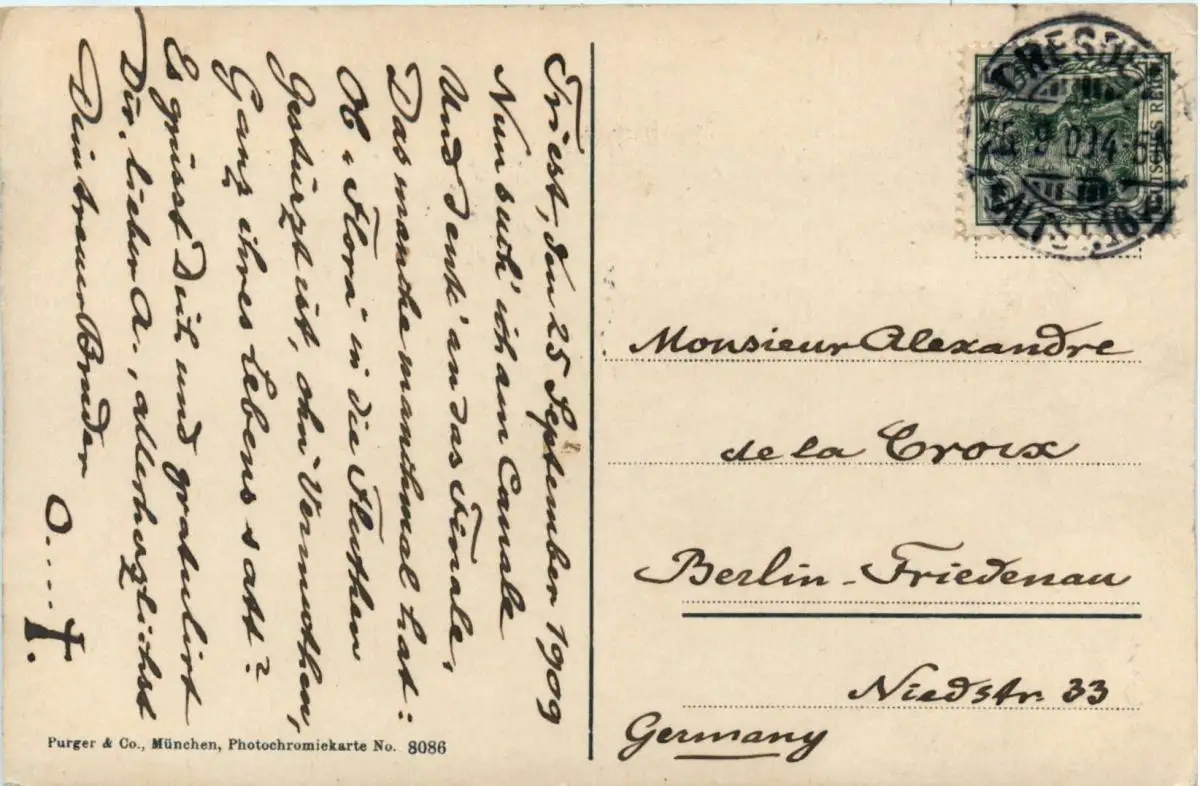 Triest, den 25 September 1909
Nun sitz' ich am Canale
Und denk' an das Finale,
Das manche manchmal hat:
Ob „Flora“ in die Fluthen
Gestürzt ist, ohn' Vermuthen,
Ganz ihres Lebens satt?
Es grüsst Dich und gratulirt
Dir, lieber A., allerherzlichst
Dein treuer Bruder
O....
DEUTSCHES REICH
DRESDEN
25.9.09 4-5
ALTST. 16
Monsieur Alexandre
de la Croix
Berlin-Friedenau
Niedstr. 33
Germany
Purger & Co., München, Photochromiekarte No. 8086